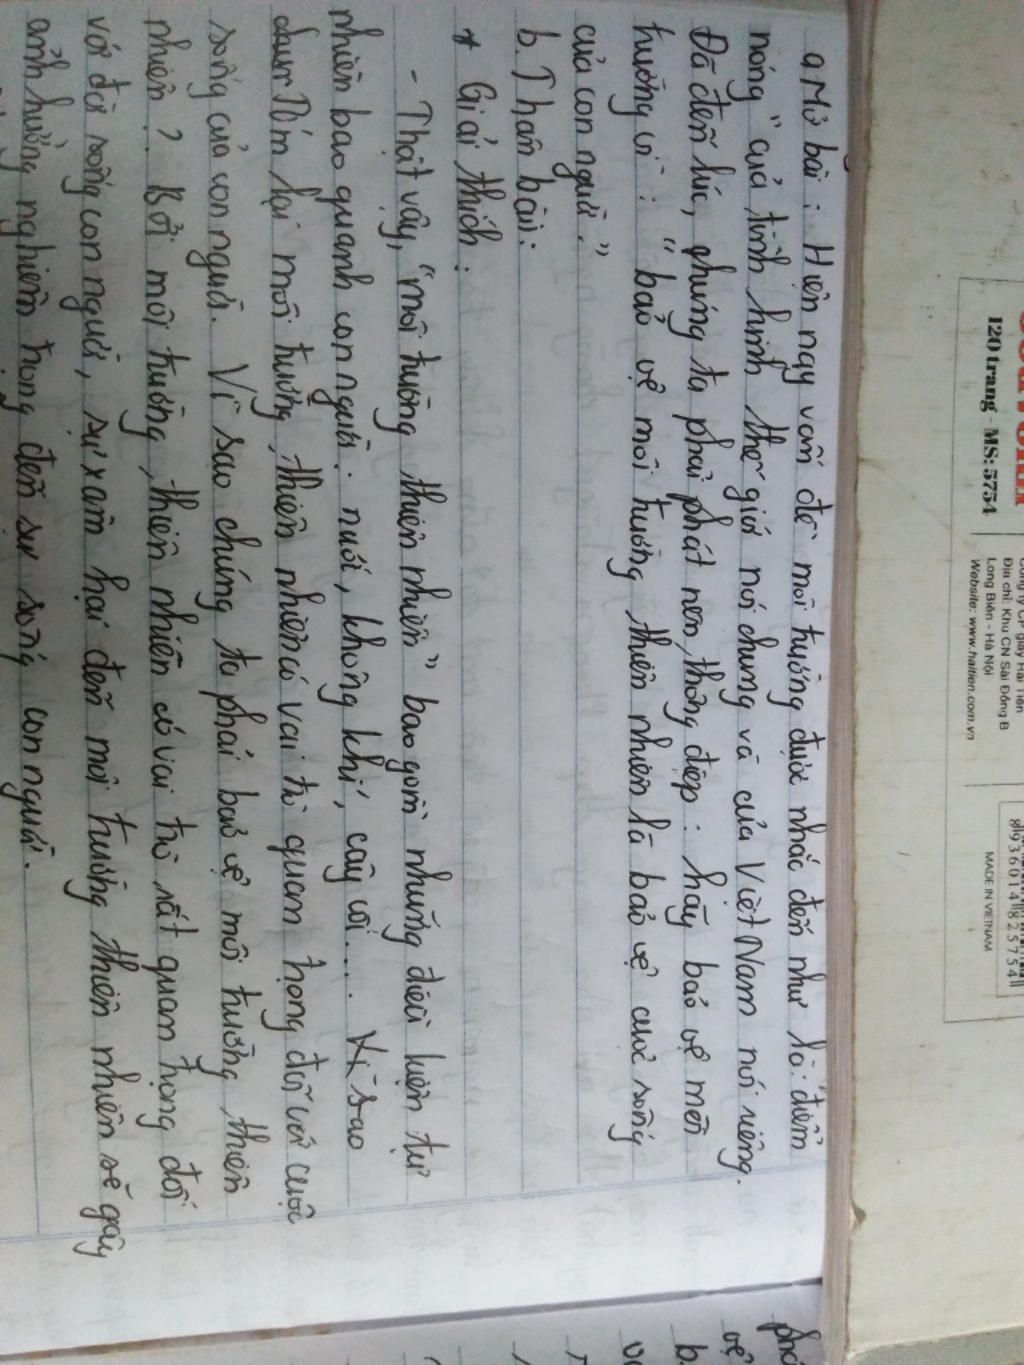 120 trang - MS: 5754
Công ty CP giấy Hải Tiến
Địa chỉ: Khu CN Sài Đồng B
Long Biên - Hà Nội
Website: www.haitien.com.vn
8936014825754
MADE IN VIETNAM
a. Mở bài: Hiện nay vấn đề môi trường được nhắc đến như là: "điểm
nóng" của tình hình thế giới nói chung và của Việt Nam nói riêng.
Đã đến lúc, chúng ta phải phát nen, thông điệp: hãy bảo vệ môi
trường vì: "bảo vệ môi trường thiên nhiên là bảo vệ cuộc sống
của con người."
b. Thân bài:
* Giải thích:
- Thật vậy, "môi trường thiên nhiên" bao gồm những điều kiện tự
nhiên bao quanh con người: nước, không khí, cây cối... Vì sao
Tóm lại môi trường, thiên nhiên có vai trò quan trọng đối với cuộc
sống của con người. Vì sao chúng ta phải bảo vệ môi trường, thiên
nhiên? Bởi môi trường, thiên nhiên có vai trò rất quan trọng đối
với đời sống con người, sự xâm hại đến môi trường thiên nhiên sẽ gây
ảnh hưởng nghiêm trọng đến sự sống con người.
vệ
b.